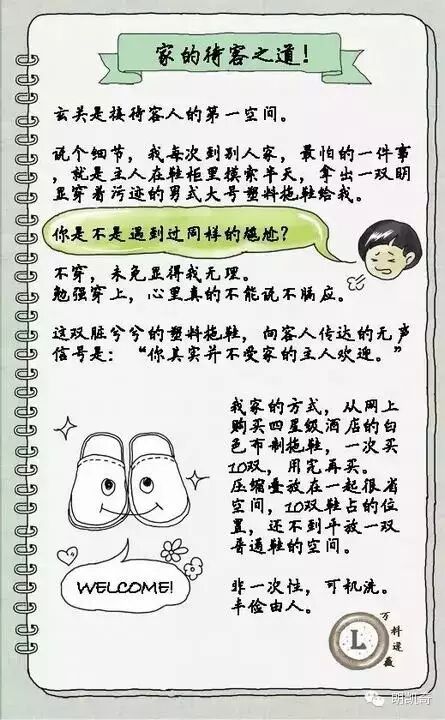 家的待客之道!
玄关是接待客人的第一空间。
说个细节，我每次到别人家，最怕的一件事
，就是主人在鞋柜里摸索半天，拿出一双明
显穿着污迹的男式大号塑料拖鞋给我。
你是不是遇到过同样的尴尬?
不穿，未免显得我无理。
勉强穿上，心里真的不能说不膈应。
这双脏兮兮的塑料拖鞋，向客人传达的无声
信号是：“你其实并不受家的主人欢迎。”
我家的方式，从网上
购买四星级酒店的白
色布制拖鞋，一次买
10双，用完再买。
压缩叠放在一起很省
空间，10双鞋占的位
置，还不到平放一双
普通鞋的空间。
WELCOME!
非一次性，可机洗。
丰俭由人。
L
万科逯薇
明凯奇